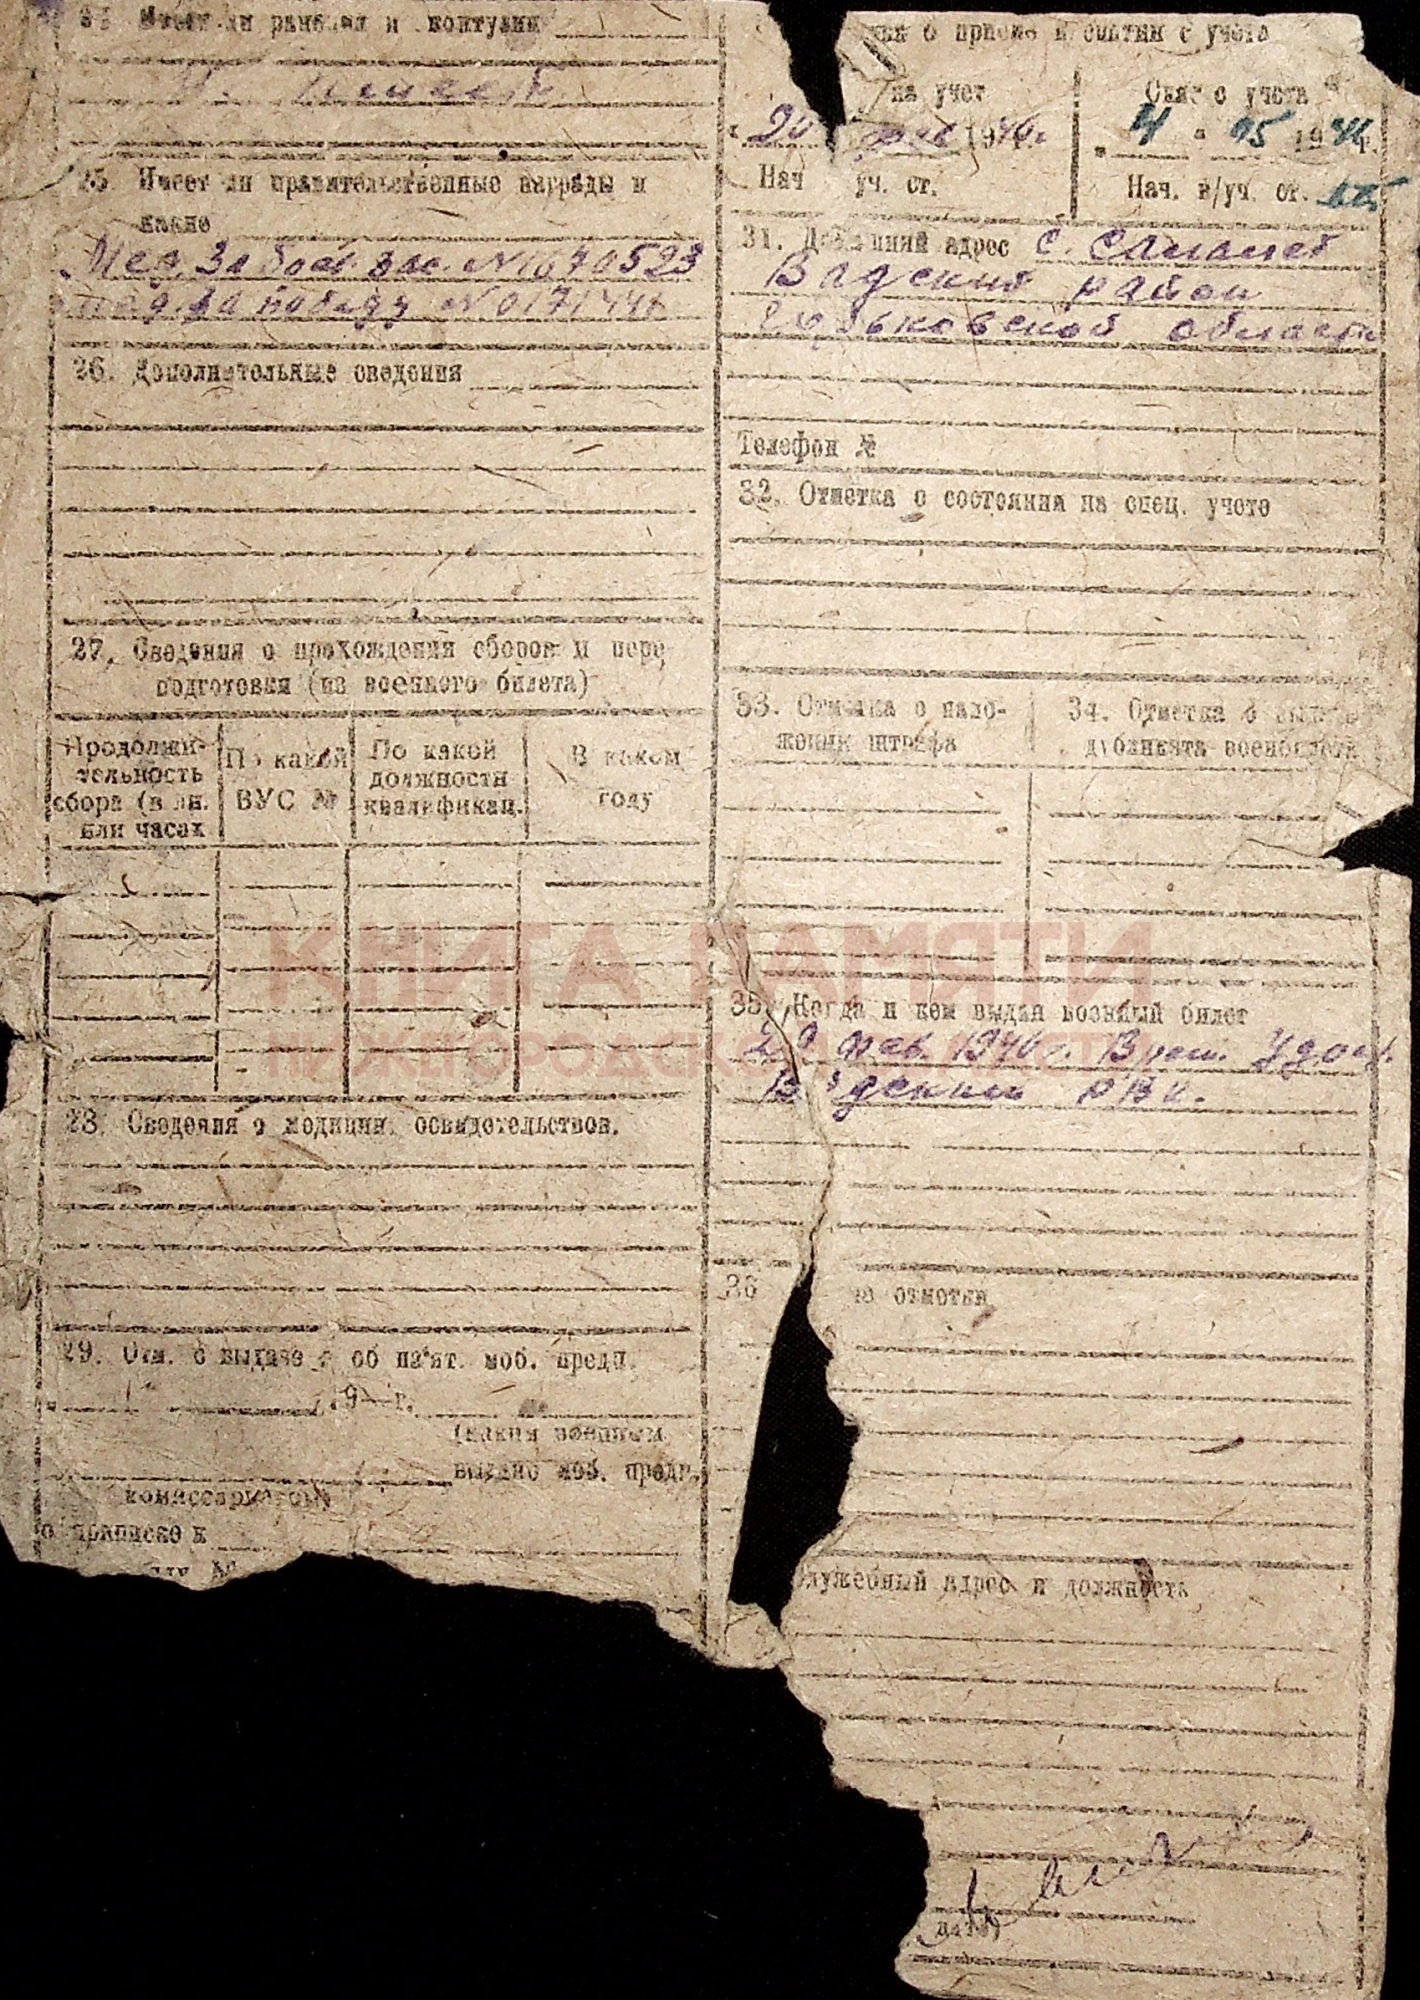 Имеет ли ранения и контузии
Не имеет
25. Имеет ли правительственные награды и
какие
Мед. За боев. зас. N 1670523
мед. за победу N 0171441
26. Дополнительные сведения
27. Сведения о прохождении сборов и пере
подготовки (из военного билета)
Продолжи-
тельность
сбора (в дн.
или часах
По какой
ВУС №
По какой
должности
квалификац.
В каком
году
28. Сведения о медицин. освидетельствов.
29. Отм. о выдаче об из'ят. моб. предп.
г.
(каким военным
выдано моб. предп.
комиссариатом
о приписке к
№
о приеме и снятии с учета
на учет
20 фев 1946 г.
Нач уч. ст.
Снят с учета
"4" 05 1946 г.
Нач. в/уч. ст.
31. Домашний адрес с. Салалей
Вадский район
Горьковской области
Телефон №
32. Отметка о состоянии на спец. учете
33. Отметка о нало-
жении штрафа
34. Отметка о выдаче
дубликата военбилета
35. Когда и кем выдан военный билет
20 фев. 1946 г. Врем. Удост.
Вадский РВК.
36
отметки
Служебный адрес и должность
КНИГА ПАМЯТИ
НИЖЕГОРОДСКОЙ ОБЛАСТИ